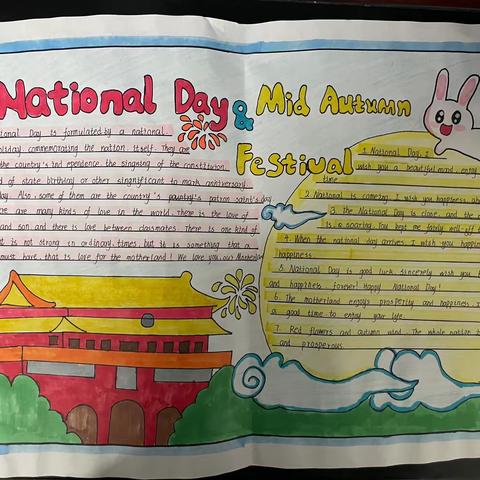 National Day & Mid Autumn Festival
tional Day is formulated by a national
oliday commemorating the nation itself. They are
the country's independence the singsing of the constitution.
d of state birthday or other singnificant to mark anniversary
day. Also, some of them are the country's country's patron saint's day
ere are many kinds of love in the world. There is the love of
and son and there is love between classmates. There is one kind of
it is not strong in ordinary times but it is something that a
must have. that is love for the motherland! We love you our Motherland
1. National Day, I
wish you a beautiful mand, enjoy
time
2. National is comeing, I wish you happiness
3. The National Day is close, and the
is a soaring. You kept me fairly well off
4. When the national day arrives I wish you happin
happiness
5. National Day is good luck sincerely wish you
and happiness forever! Happy National Day!
6. The motherland enjoys prosperity and happiness.
a good time to enjoy your life.
7. Red flowers and autumn wind. The whole nation
and prosperous.